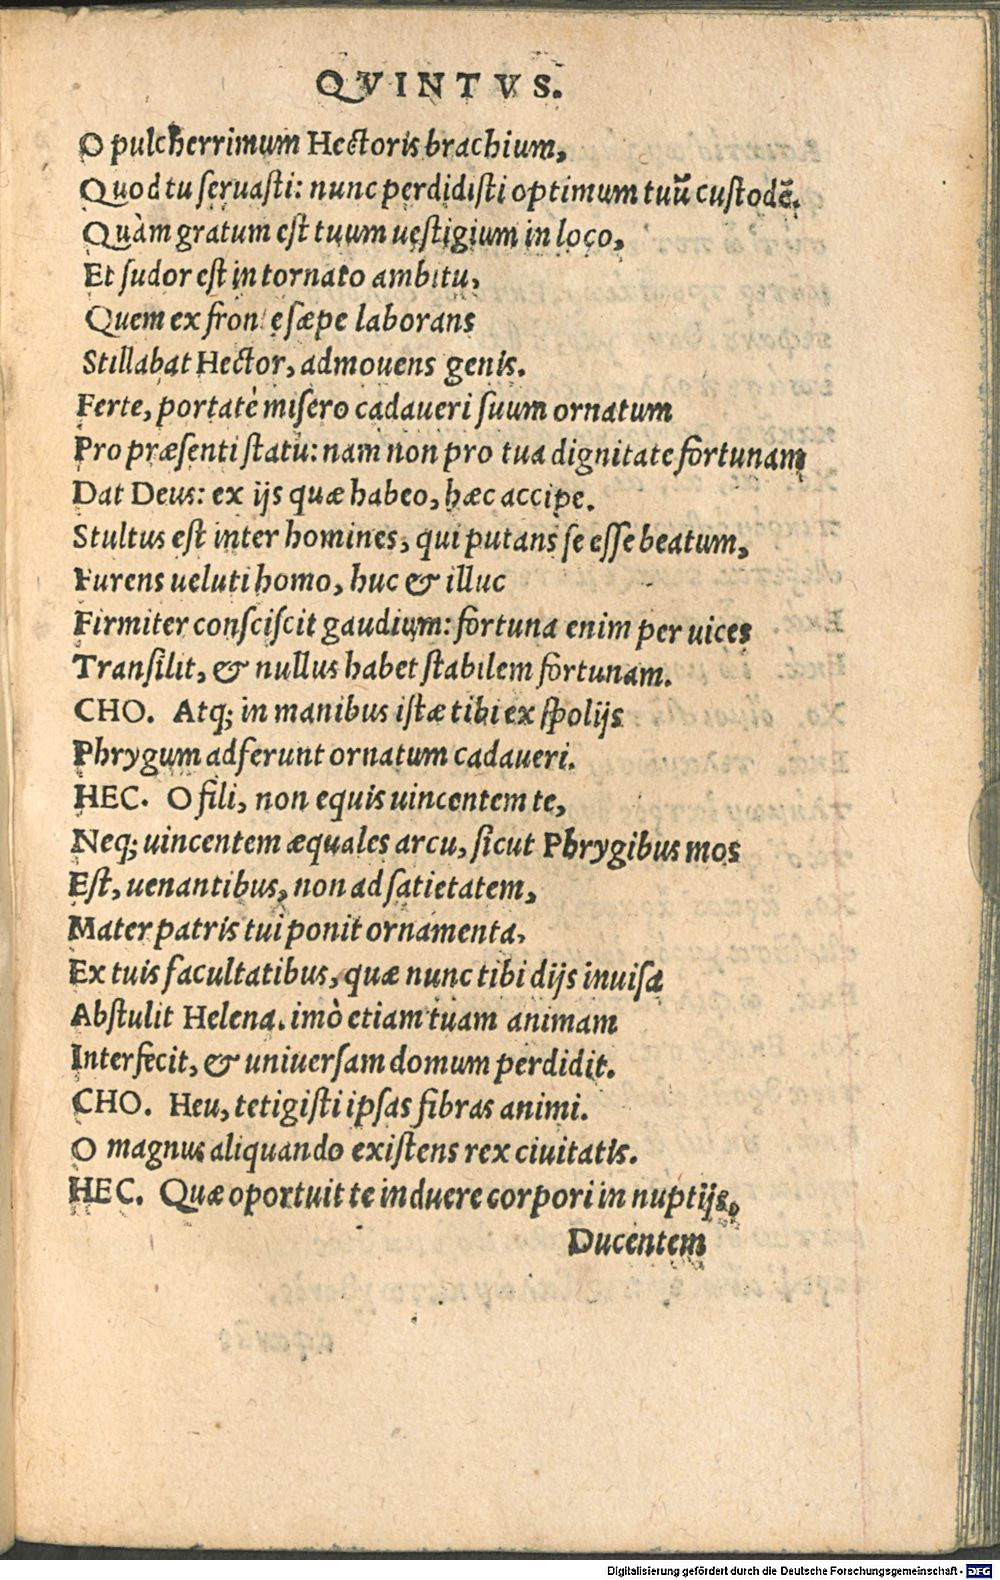 QVINTVS.
O pulcherrimum Hectoris brachium,
Quod tu seruasti: nunc perdidisti optimum tuũ custodẽ.
Quàm gratum est tuum uestigium in loco,
Et sudor est in tornato ambitu,
Quem ex fronte sæpe laborans
Stillabat Hector, admouens genis.
Ferte, portate misero cadaueri suum ornatum
Pro præsenti statu: nam non pro tua dignitate fortunam
Dat Deus: ex ijs quæ habeo, hæc accipe.
Stultus est inter homines, qui putans se esse beatum,
Furens ueluti homo, huc & illuc
Firmiter consciscit gaudium: fortuna enim per uices
Transilit, & nullus habet stabilem fortunam.
CHO. Atq; in manibus istæ tibi ex spolijs
Phrygum adferunt ornatum cadaueri.
HEC. O fili, non equis uincentem te,
Neq; uincentem æquales arcu, sicut Phrygibus mos
Est, uenantibus, non ad satietatem,
Mater patris tui ponit ornamenta,
Ex tuis facultatibus, quæ nunc tibi dijs inuisa
Abstulit Helena. imò etiam tuam animam
Interfecit, & uniuersam domum perdidit.
CHO. Heu, tetigisti ipsas fibras animi.
O magnus aliquando existens rex ciuitatis.
HEC. Quæ oportuit te induere corpori in nuptijs,
Ducentem
Digitalisierung gefördert durch die Deutsche Forschungsgemeinschaft - DFG